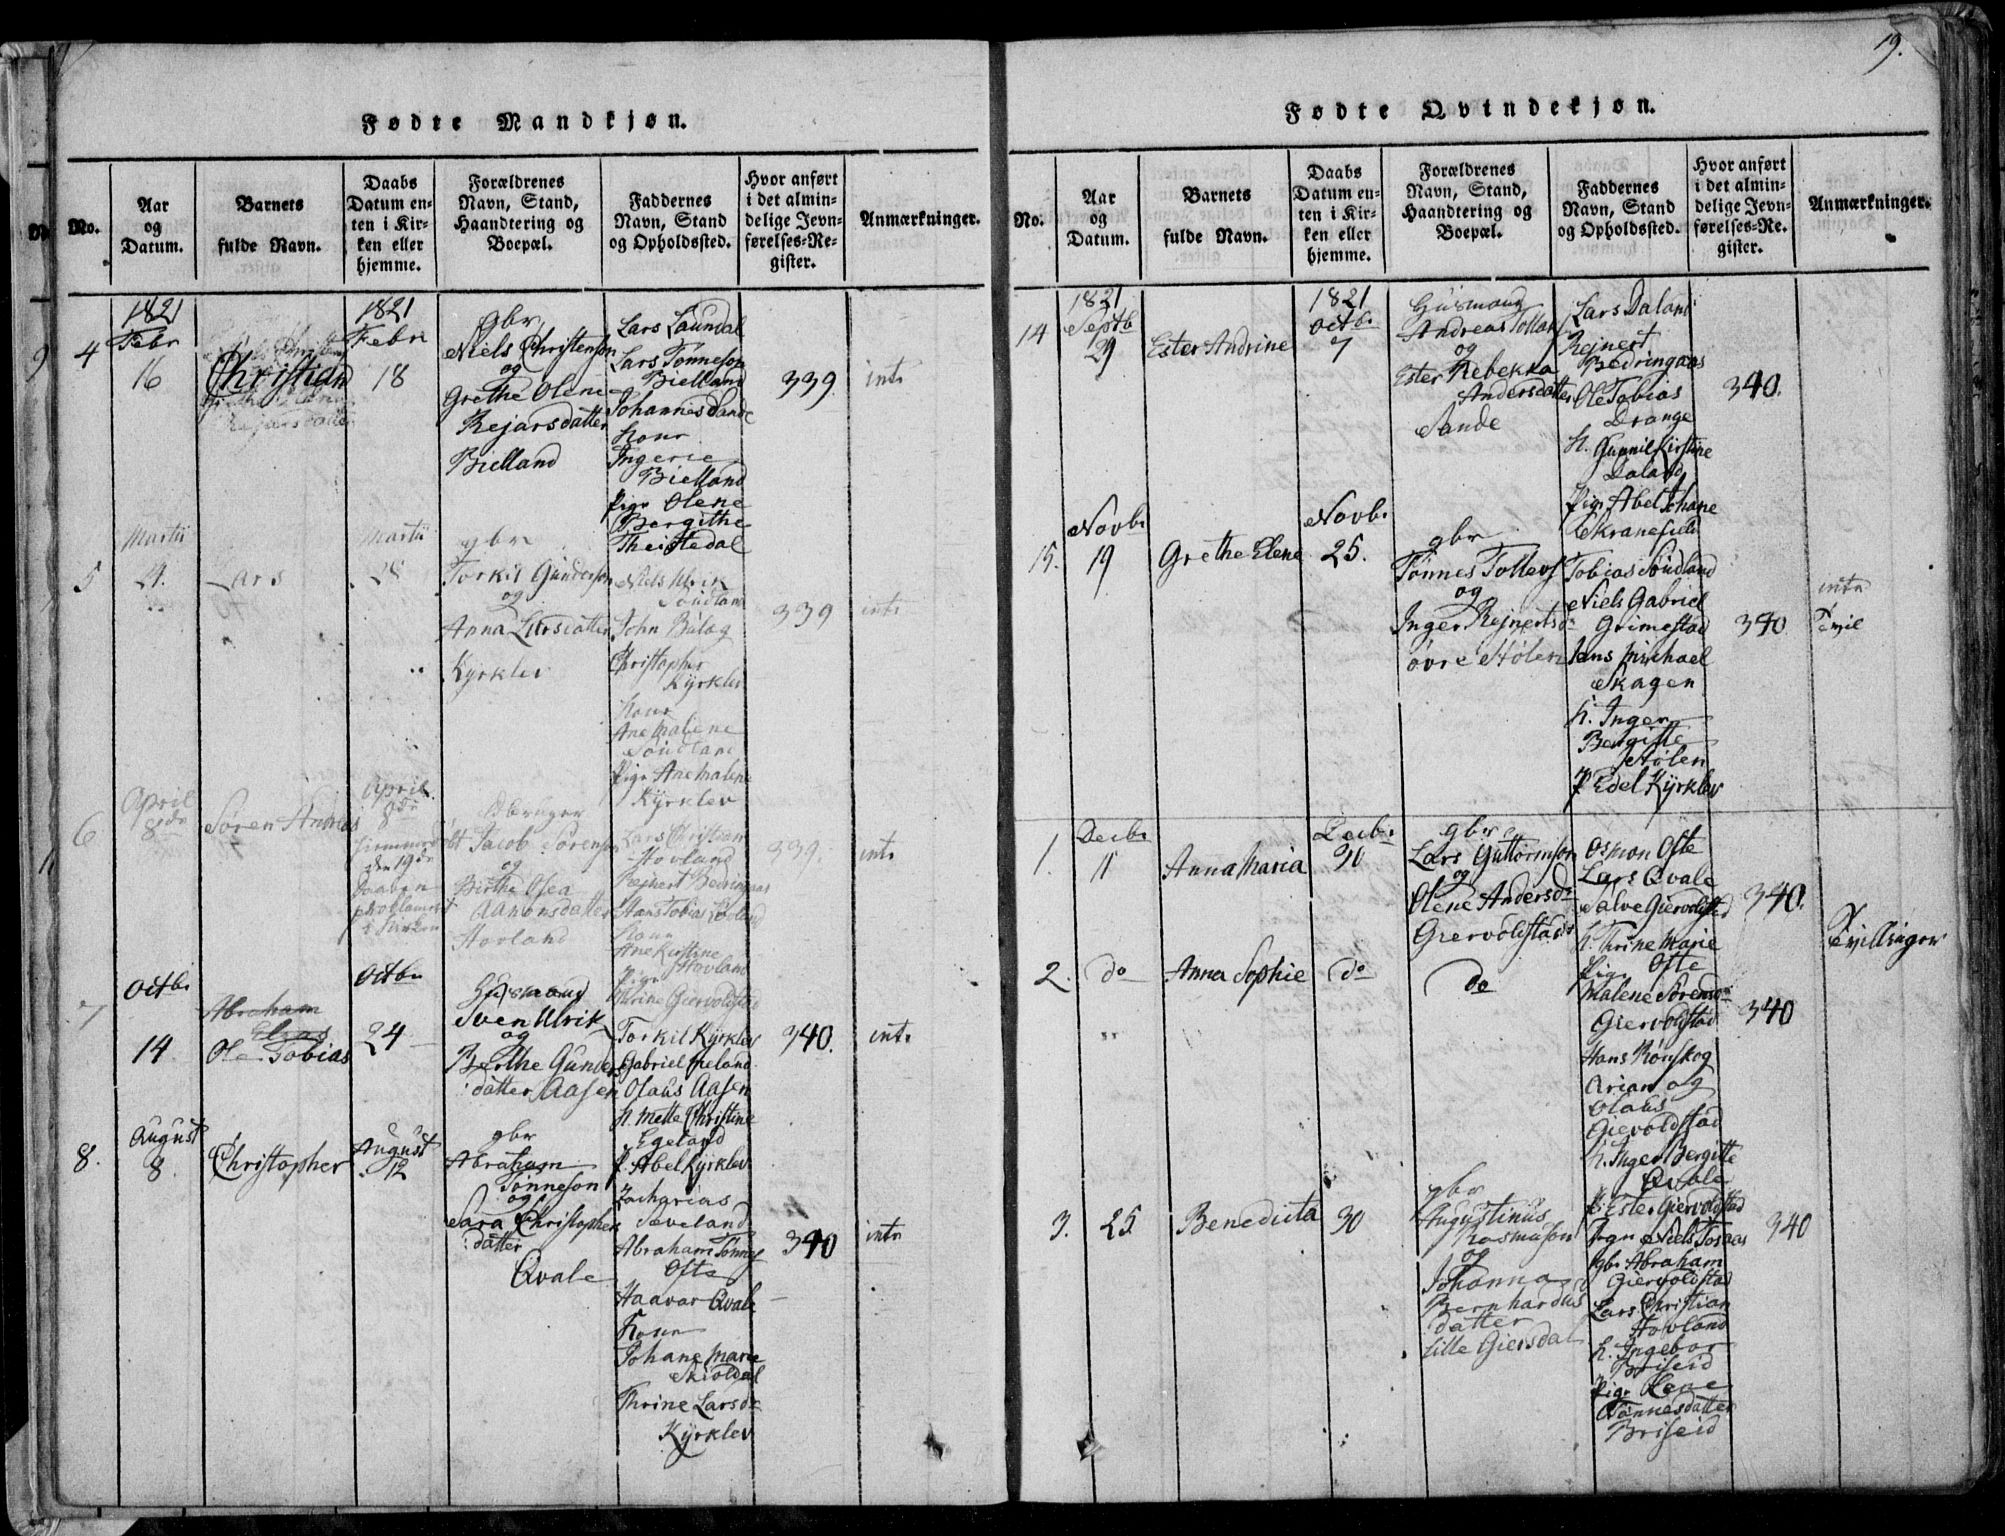 19.
Fødte Mandkjøn.
No.
Aar
og
Datum.
Barnets
fulde Navn.
Daabs
Datum en-
ten i Kir-
ken eller
hjemme.
Forældrenes
Navn, Stand,
Haandtering og
Boepæl.
Faddernes
Navn, Stand
og Opholdssted.
Hvor anført
i det almin-
delige Jevn-
førelses-Re-
gister.
Anmærkninger.
4
1821
Febr
16
Christian
1821
Febr
18
gbr
Niels Christenson
og
Grethe Olene
Rejarsdatter
Bielland
Lars Laundal
Lars Tønneson
Bielland
Johannes Sande
Kone
Ingerie
Bielland
Pige Olene
Bergithe
Theistedal
339
intr
5
Martii
21.
Lars
Martii
gbr
Torkil Gunderson
og
Anna Larsdatter
Kyrklev
Niels Ulrik
Soudland
John Bulag
Christopher
Kyrklev
Kone
Ane Malene
Soudland
Pige Ane Malene
Kyrklev
339
intr
6
April
8de
Søren Andreas
April
8de
den 19de
Daaben
i Kirken
Jacob Sørenson
og
Birthe Osea
Aanonsdatter
Hovland
Lars Christian
Hovland
Rejnert Bedringaas
Hans Tobias
Kone
Ane Kirstine
Hovland
Pige
Thrine Giervoldstad
339.
intr
7
Octbr
14
Abraham
Elias
Ole Tobias
Octbr
24
Huusmand
Sven Ulrik
og
Berthe Gunders
datter Aasen
Torkil Kyrklev
Gabriel Ipeland
Olaus Aasen
K. Mette Christine
Egeland
P. Abel Kyrklev
340.
intr
8.
August
8
Christopher
August
12
gbr
Abraham
Tønneson
og
Sara Christophers
datter
Qvale
Zacharias
Søveland
Abraham Tønnes
Ofte
Haavar Qvale
Kone
Johane Marie
Skioldal
Thrine Larsdr
Kyrklev
340
intr
Fødte Qvindekjøn.
No.
Aar
og
Datum.
Barnets
fulde Navn.
Daabs
Datum en-
ten i Kir-
ken eller
hjemme.
Forældrenes
Navn, Stand,
Haandtering og
Boepæl.
Faddernes
Navn, Stand
og Opholdssted.
Hvor anført
i det almin-
delige Jevn-
førelses-Re-
gister.
Anmærkninger.
14
1821
Septb
29
Ester Andrine
1821
Octbr
7
Huusmand
Andreas Tollaks
og
Ester Rebekka
Andersdatter
Sande
Lars Daland
Rejnert
Bedringaas
Ole Tobias
Drange
K. Gunnil Kirstine
Daland
Pige Abel Johane
340.
15.
Novbr
19
Grethe Elene
Novbr
25.
gbr
Tønnes Tollevs
og
Inger Rejnertsdr
øvre Hølen
Tobias Soudland
Niels Gabriel
Grimestad
Jens Michael
Skagen
K. Inger
Bergitte
Hølen
P Edel Kyrklev
340
intr
1.
Decbr
11
Anna Maria
Decbr
30
gbr
Lars Guttormson
og
Olene Andersdr
Giervoldstad
Osmon Ofte
Lars Qvale
Salve Giervoldstad
K. Thrine Marie
Ofte
Pige
Malene Sørensdr
Giervoldstad
340.
Tvillinger
2.
do
Anna Sophie
do
do
Hans Rønskog
Arian og
Olaus
Giervoldstad
K. Inger Bergitte
Qvale
P. Ester Giervoldstad
340
3.
25
Benedicta
30
gbr
Augustinus
Rasmuson
og
Johanna
Bernhardus
datter
Lille Giersdal
Niels Tosaas
gbr Abraham
Giervoldstad
Lars Christian
Hovland
K. Ingebor
Briseid
Pige Lene
Tønnesdatter
Briseid
340